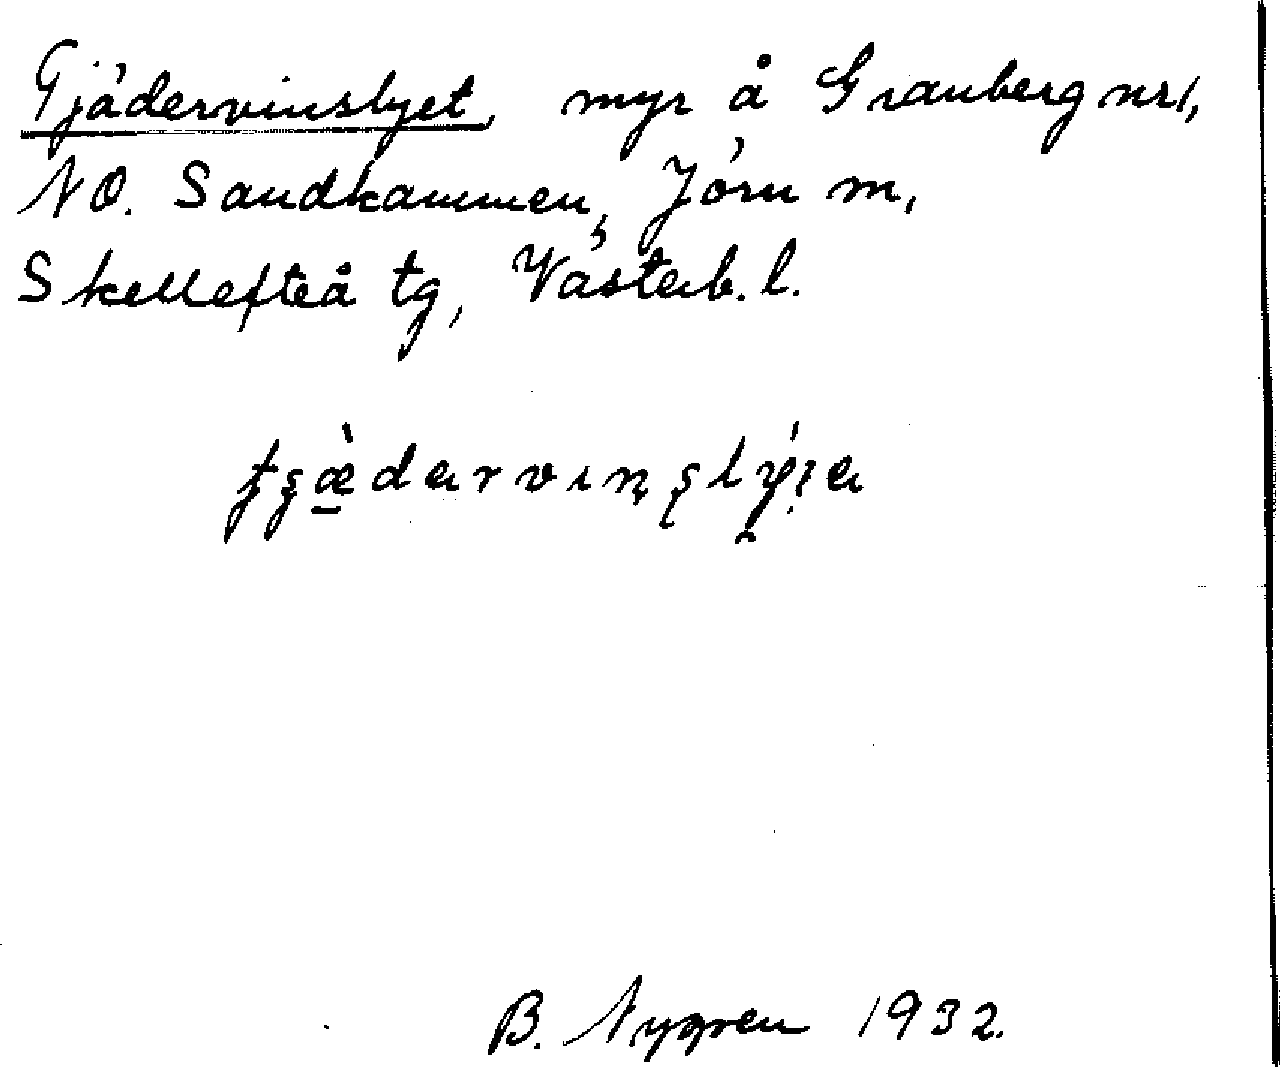 Tjädervinslyet, myr å Granberg nr 1,
NO. Sandkammen, Jörn sn,
Skellefteå tg, Västerb. l.
B. Nygren 1932.